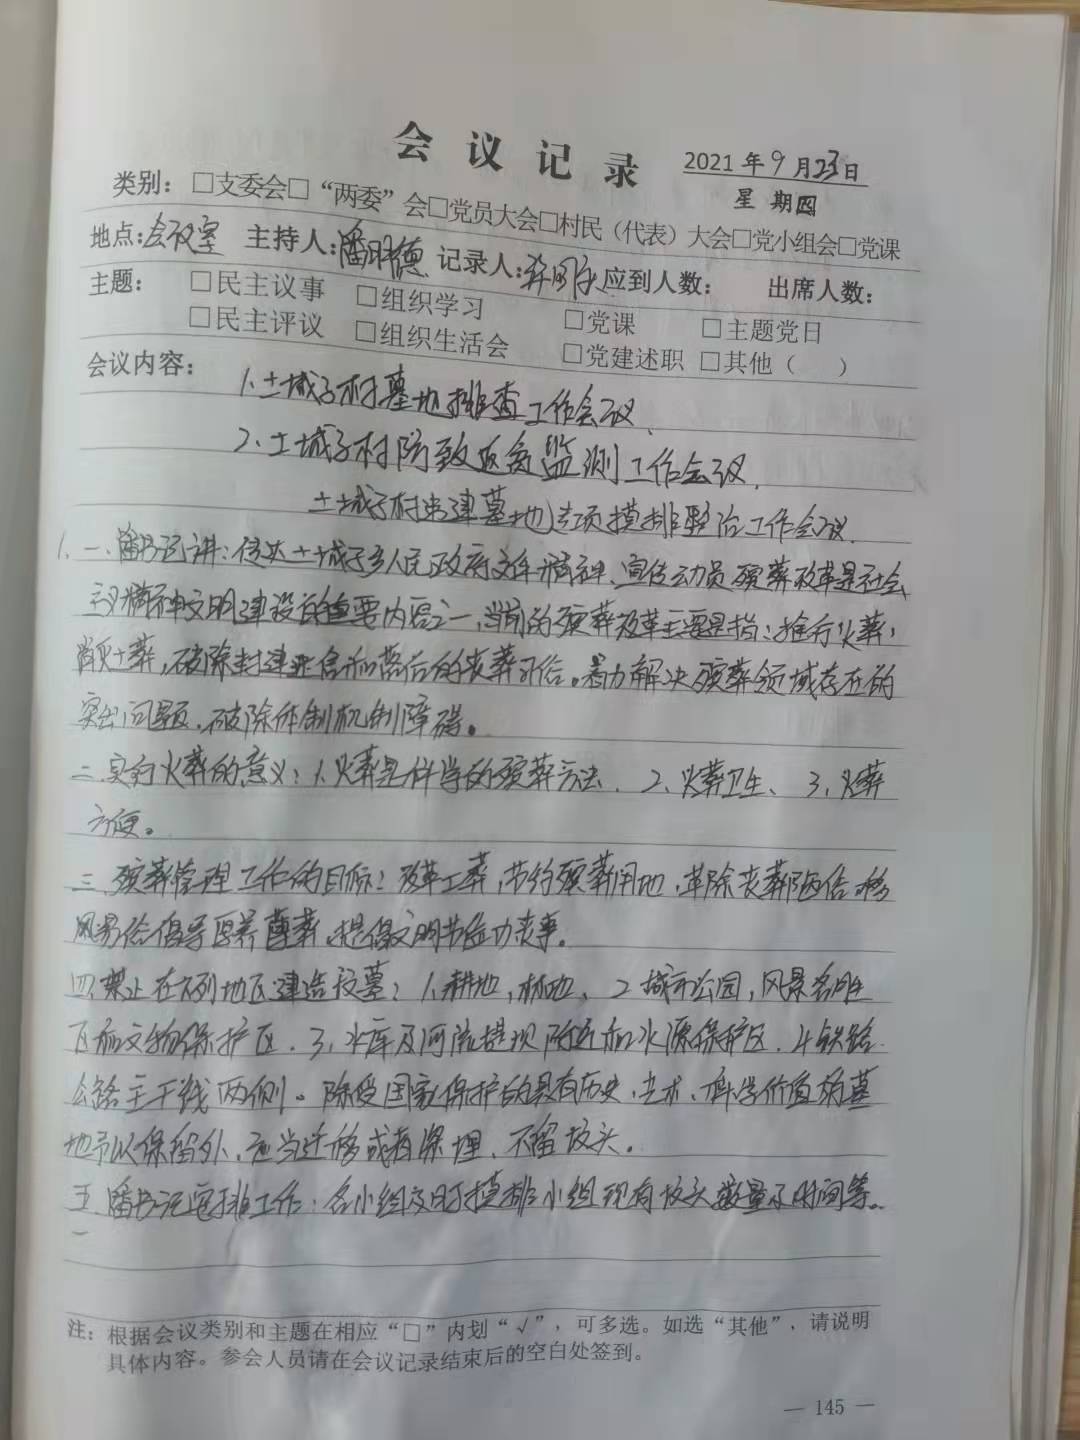 会议记录 2021年9月23日
星期四
类别：□支委会□“两委”会□党员大会□村民（代表）大会□党小组会□党课
地点:会议室 主持人:潘明德 记录人: 应到人数： 出席人数：
主题： □民主议事 □组织学习 □党课 □主题党日
□民主评议 □组织生活会 □党建述职 □其他（ ）
会议内容：
1、土城子村墓地排查工作会议、
2、土城子村防致返贫监测工作会议、
土城子村 建墓地专项摸排整治工作会议、
1、一、潘书记讲：传达土城子乡人民政府文件精神、宣传动员殡葬改革是社会
主义精神文明建设的重要内容之一，当前的殡葬改革主要是指：推行火葬，
消灭土葬，破除封建迷信和落后的丧葬习俗。着力解决殡葬领域存在的
突出问题，破除体制机制障碍。
二、实行火葬的意义：1、火葬是科学的殡葬方法、2、火葬卫生、3、火葬
方便。
三、殡葬管理工作的目标：改革土葬，节约殡葬用地，革除丧葬陋俗 移
风易俗倡导厚养薄葬、提倡文明节俭办丧事。
四、禁止在下列地区建造坟墓：1、耕地，林地、2、城市公园，风景名胜
区和文物保护区、3、水库及河流堤坝附近和水源保护区、4、铁路、
公路主干线两侧。除受国家保护的具有历史、艺术、科学价值的墓
地予以保留外，应当迁移或者深埋、不留坟头。
五、潘书记安排工作：各小组及时摸排小组现有坟头数量及时间等。
注：根据会议类别和主题在相应“□”内划“√”，可多选。如选“其他”，请说明
具体内容。参会人员请在会议记录结束后的空白处签到。
— 145 —